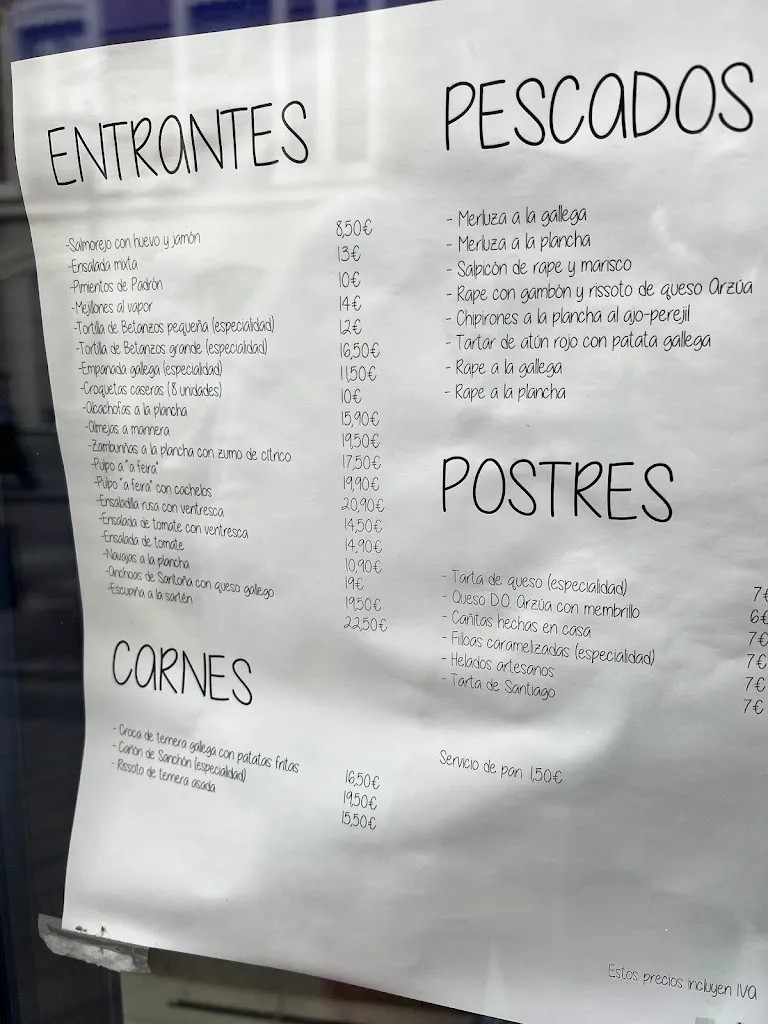 ENTRANTES
-Salmorejo con huevo y jamón 8,50€
-Ensalada mixta 13€
-Pimientos de Padrón 10€
-Mejillones al vapor 14€
-Tortilla de Betanzos pequeña (especialidad) 12€
-Tortilla de Betanzos grande (especialidad) 16,50€
-Empanada gallega (especialidad) 11,50€
-Croquetas caseras (8 unidades) 10€
-Alcachofas a la plancha 15,90€
-Almejas a marinera 19,50€
-Zamburiñas a la plancha con zumo de cítrico 17,50€
-Pulpo a "a feira" 19,90€
-Pulpo "a feira" con cachelos 20,90€
-Ensaladilla rusa con ventresca 14,50€
-Ensalada de tomate con ventresca 14,90€
-Ensalada de tomate 10,90€
-Navajas a la plancha 19€
-Anchoas de Santoña con queso gallego 19,50€
-Escupiña a la sartén 22,50€
CARNES
- Croca de ternera gallega con patatas fritas 16,50€
- Cañón de Sanchón (especialidad) 19,50€
- Rissoto de ternera asada 15,50€
PESCADOS
- Merluza a la gallega
- Merluza a la plancha
- Salpicón de rape y marisco
- Rape con gambón y rissoto de queso Arzúa
- Chipirones a la plancha al ajo-perejil
- Tartar de atún rojo con patata gallega
- Rape a la gallega
- Rape a la plancha
POSTRES
- Tarta de queso (especialidad) 7€
- Queso D.O. Arzúa con membrillo 6€
- Cañitas hechas en casa 7€
- Filloas caramelizadas (especialidad) 7€
- Helados artesanos 7€
- Tarta de Santiago 7€
Servicio de pan 1,50€
Estos precios incluyen IVA